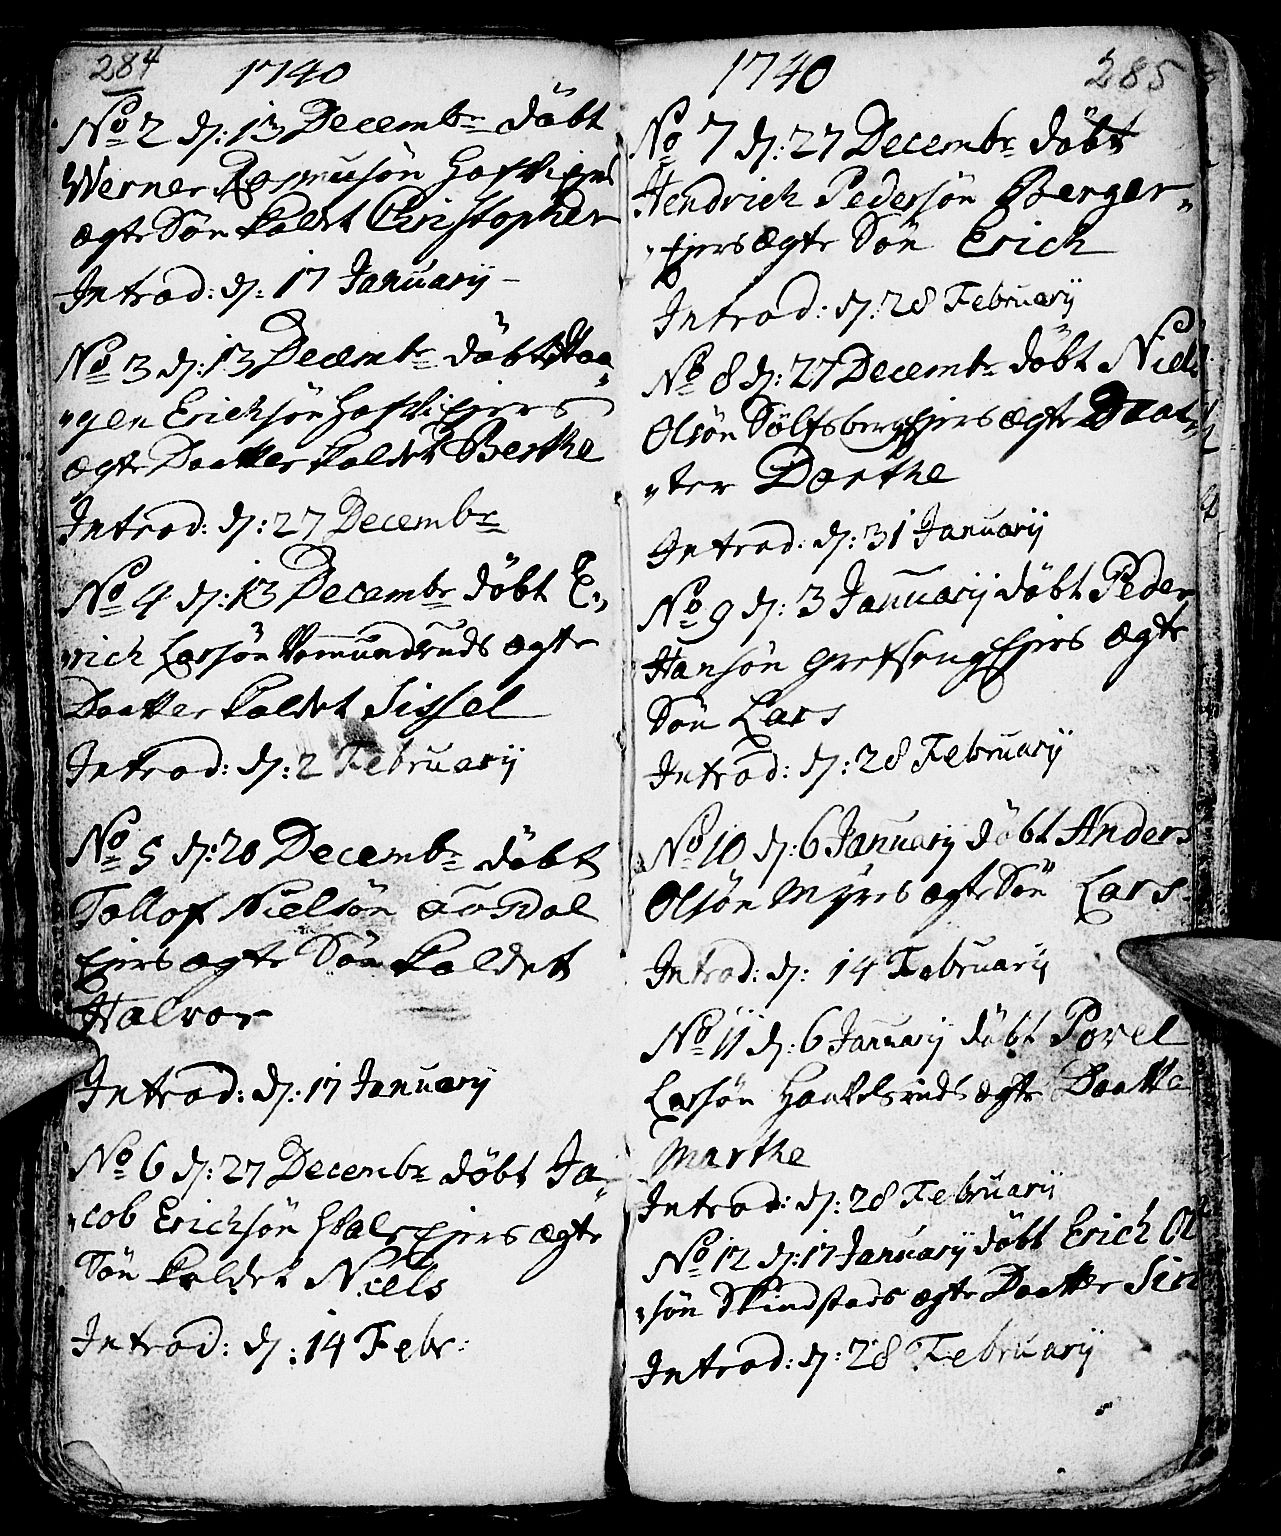 284 1740
No 2 d: 13 Decembr döbt
Werner Rasmusön
ægte Sön kaldet Christopher
Introd: d: 17 Januarij
No 3 d: 13 Decembr döbt Haa„
„gen Erichsön
ægte Daatter kaldet Berthe
Introd: d: 27 Decembr
No 4 d: 13 Decembr döbt E„
„rich Larsön ægte
Daatter kaldet Sissel
Introd: d: 2 Februarij
No 5 d: 20 Decembr döbt
Tollof Nielsön Ausdal
Ejers ægte Sön kaldet
Halvor
Introd: d: 17 Januarij
No 6 d: 27 Decembr döbt Ja„
„cob Erichsön ægte
Sön kaldet Niels
Introd: d: 14 Febr:
1740 285
No 7 d: 27 Decembr döbt
Hendrich Pedersön Berger„
„Ejers ægte Sön Erich
Introd: d: 28 Februarij
No 8 d: 27 Decembr döbt Niels
Olsön Sölfsberg Ejers ægte Daat„
„ter Dorthe
Introd: d: 31 Januarij
No 9 d: 3 Januarij döbt Peder
Hansön Grefseng Ejers ægte
Sön Lars
Introd: d: 28 Februarij
No 10 d: 6 Januarij döbt Anders
Olsön Myres ægte Sön Lars
Introd: d: 14 Februarij
No 11 d: 6 Januarij döbt Povel
Larsön ægte Daatte
Marthe
Introd: d: 28 Februarij
No 12 d: 17 Januarij döbt Erich Ol
„sön Skindstads ægte Daatter Siri
Introd: d: 28 Februarij